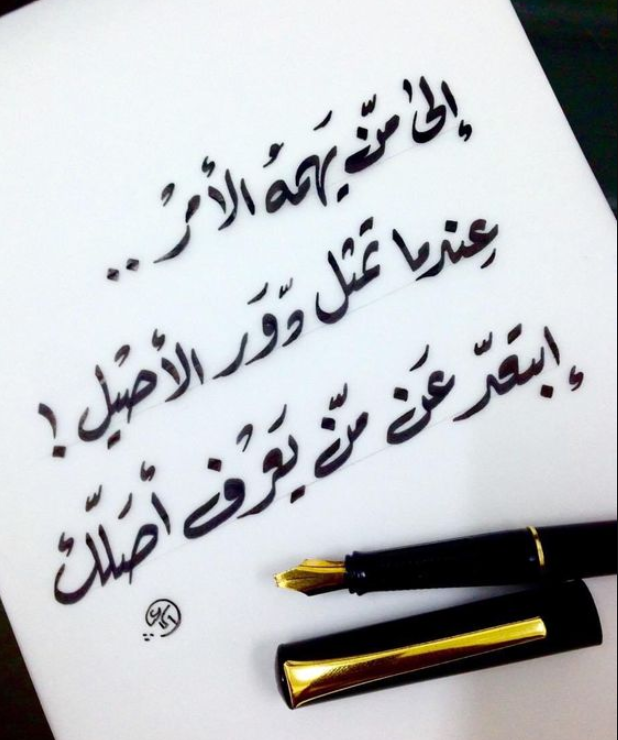 إلى منّ يَهمهُ الأمرُ ..
عِندما تَمثل دّوَر الأصْيل !
إبتعَدّ عَن منّ يَعرْف أصَلّكْ